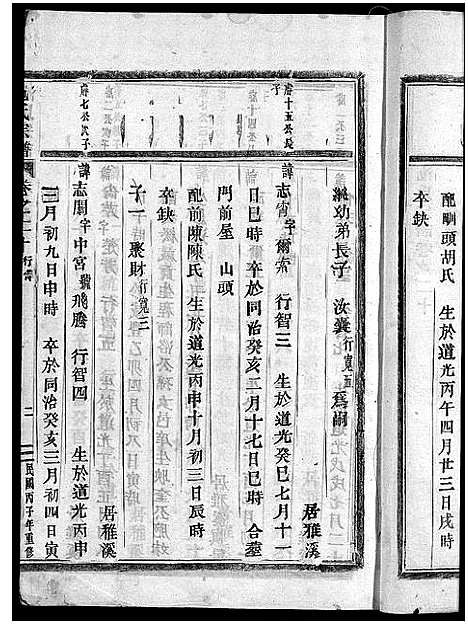 配㘭頭胡氏 生於道光丙午四月廿三日戌時
卒缺
繼幼弟長子 汝囊行寬五爲嗣 居雅溪
唐十五公長子
諱志宵字爾索 行智三 生於道光癸巳七月十一
日巳時 卒於同治癸亥二月十七日巳時 合墓
門前屋 山頭
配前陳陳氏 生於道光丙申十月初三日辰時
卒缺
子一 聚財行寬三 居雅溪
唐七公次子
諱志開字中宮號飛騰 行智四 生於道光丙申
三月初九日申時 卒於同治癸亥三月初四日寅
氏宗譜 行實 二 民國丙子年重修